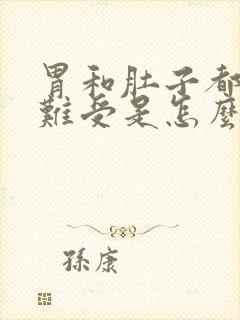 胃和肚子都
難受是怎麼
孫康